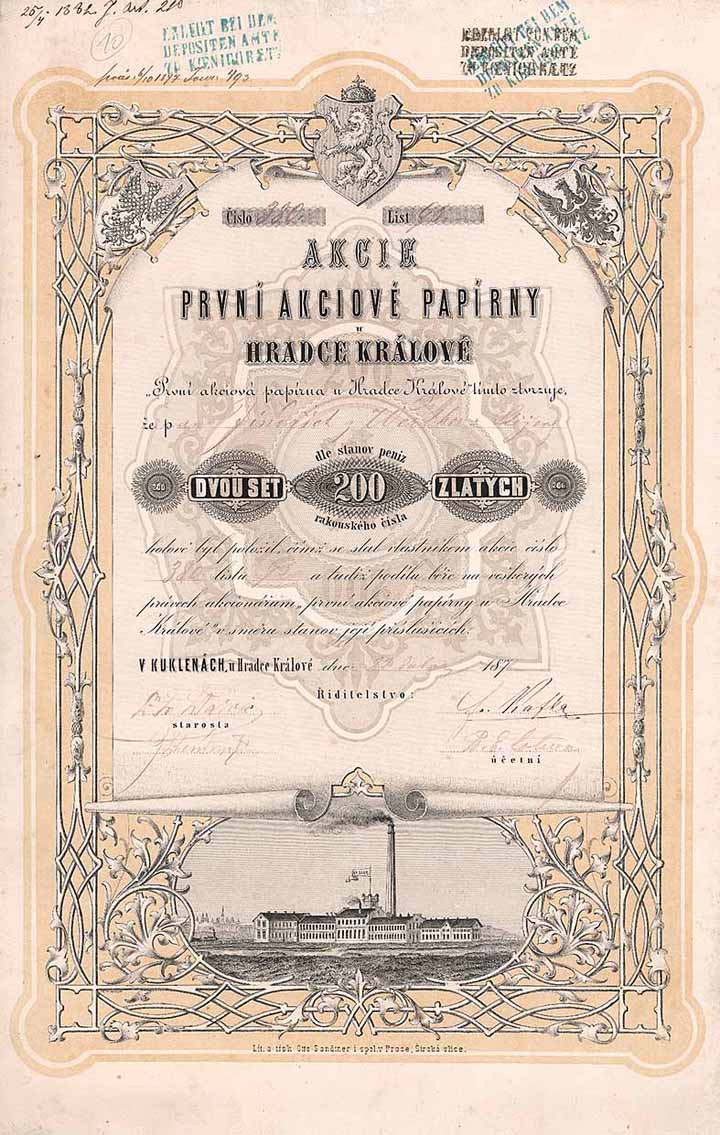 25/4 1882 J. art. 210
10
ERLEGT BEI DEM
DEPOSITEN AMTE
ZU KOENIGGRÆTZ
DEPOSITEN AMTE
ZU KOENIGGRÆTZ
Číslo 380 List
AKCIE
PRVNÍ AKCIOVÉ PAPÍRNY
u
HRADCE KRÁLOVÉ
„První akciová papírna u Hradce Králové“ tímto stvrzuje,
že p
dle stanov peníz
200 DVOU SET 200 ZLATÝCH 200
rakouského čísla
hotově byl položil, čímž se stal vlastníkem akcie číslo
380 listu a tudíž podílu béře na veškerých
právech akcionářům „první akciové papírny u Hradce
Králové“ v směru stanov její příslušících.
V KUKLENÁCH, u Hradce Králové dne 187
Ředitelstvo:
starosta
Kafka
účetní
Lit. a tisk Otto Sandtner i spol. v Praze, Široká ulice.